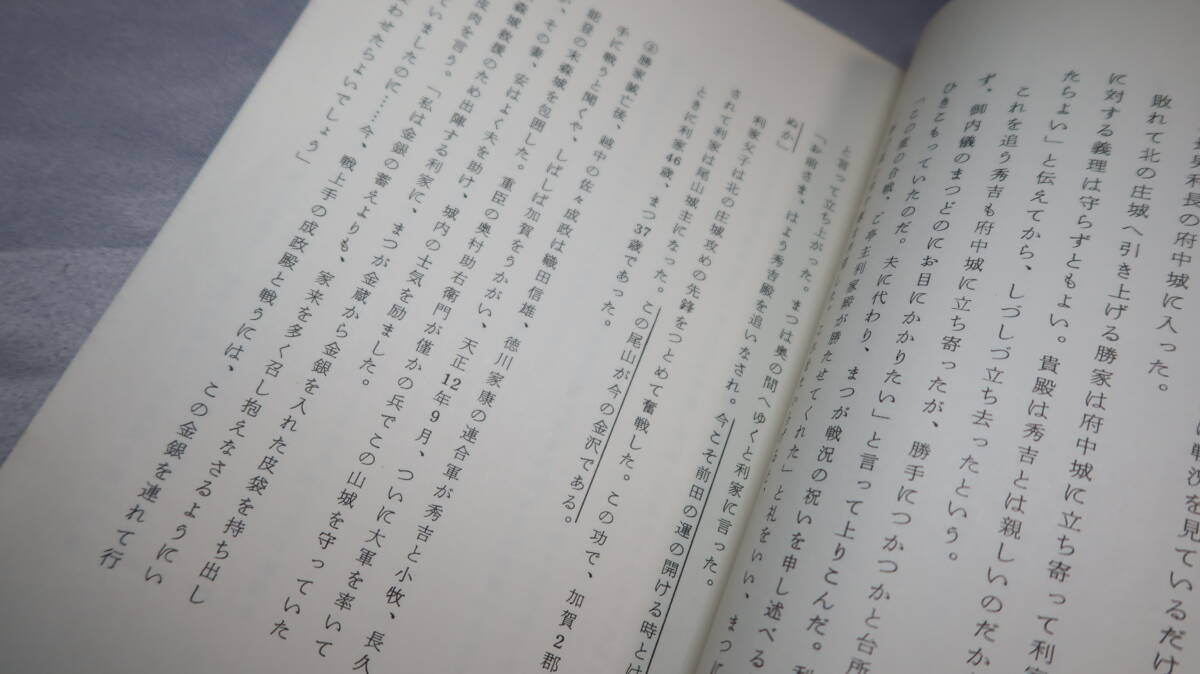 に戦況を見ているだけ
利長の府中城に入った。
敗れて北の庄城へ引き上げる勝家は府中城に立ち寄って利家
に対する義理は守らずともよい。貴殿は秀吉とは親しいのだか
たちよい」と伝えてから、しづしづ立ち去ったという。
これを追う秀吉も府中城に立ち寄ったが、勝手につかつかと台所
ず、御内儀のまつどのにお目にかかりたい」と言って上りこんだ。利
ひきこもっていたのだ。夫に代わり、まつが戦況の祝いを申し述べる
「この度の合戦、ご亭主利家殿が勝たせてくれた」と礼をいい、まつに
と言って立ち上がった。まつは奥の間へゆくと利家に言った。
「お前さま、はよう秀吉殿を追いなされ。今こそ前田の運の開ける時とは
ぬか」
利家父子は北の庄城攻めの先鋒をつとめて奮戦した。この功で、加賀2郡
されて利家は尾山城主になった。この尾山が今の金沢である。
ときに利家46歳、まつ37歳であった。
②勝家滅亡後、越中の佐々成政は織田信雄、徳川家康の連合軍が秀吉と小牧、長久
手に戦うと聞くや、しばしば加賀をうかがい、天正12年9月、ついに大軍を率いて
能登の末森城を包囲した。重臣の奥村助右衛門が僅かの兵でこの山城を守っていた
が、その妻、安はよく夫を助け、城内の士気を励ました。
森城救援のため出陣する利家に、まつが金蔵から金銀を入れた皮袋を持ち出し
皮肉を言う。「私は金銀の蓄えよりも、家来を多く召し抱えなさるようにい
ていましたのに……今、戦上手の成政殿と戦うには、この金銀を連れて行
わせたらよいでしょう」